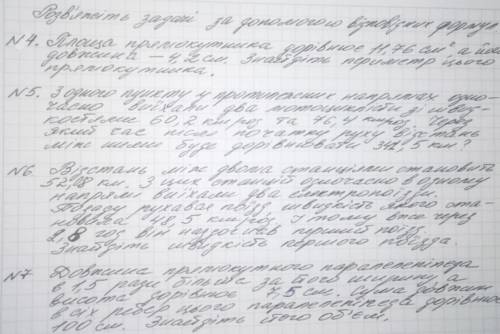 Розв'яжіть задачі за допомогою відповідних формул.
№4. Площа прямокутника дорівнює 11,76 см² а його
довжина — 4,2 см. Знайдіть периметр цього
прямокутника.
№5. З одного пункту у протилежних напрямах одно-
часно виїхали два мотоциклісти зі швид-
костями 60,2 км/год та 76,4 км/год. Через
який час після початку руху відстань
між ними буде дорівнювати 341,5 км?
№6 Відстань між двома станціями становить
52,08 км. З цих станцій одночасно в одному
напрямі виїхали два електропоїзди.
Позаду рухався поїзд швидкість якого ста-
новила 48,5 км/год. І тому вже через
2,8 год він наздогнав перший поїзд.
Знайдіть швидкість першого поїзда.
№7 Довжина прямокутного паралелепіпеда
в 1,5 рази більша за його ширину, а
висота дорівнює 7,5 см. Сума довжин
всіх ребер цього паралелепіпеда дорівнює
100 см. Знайдіть його об'єм.